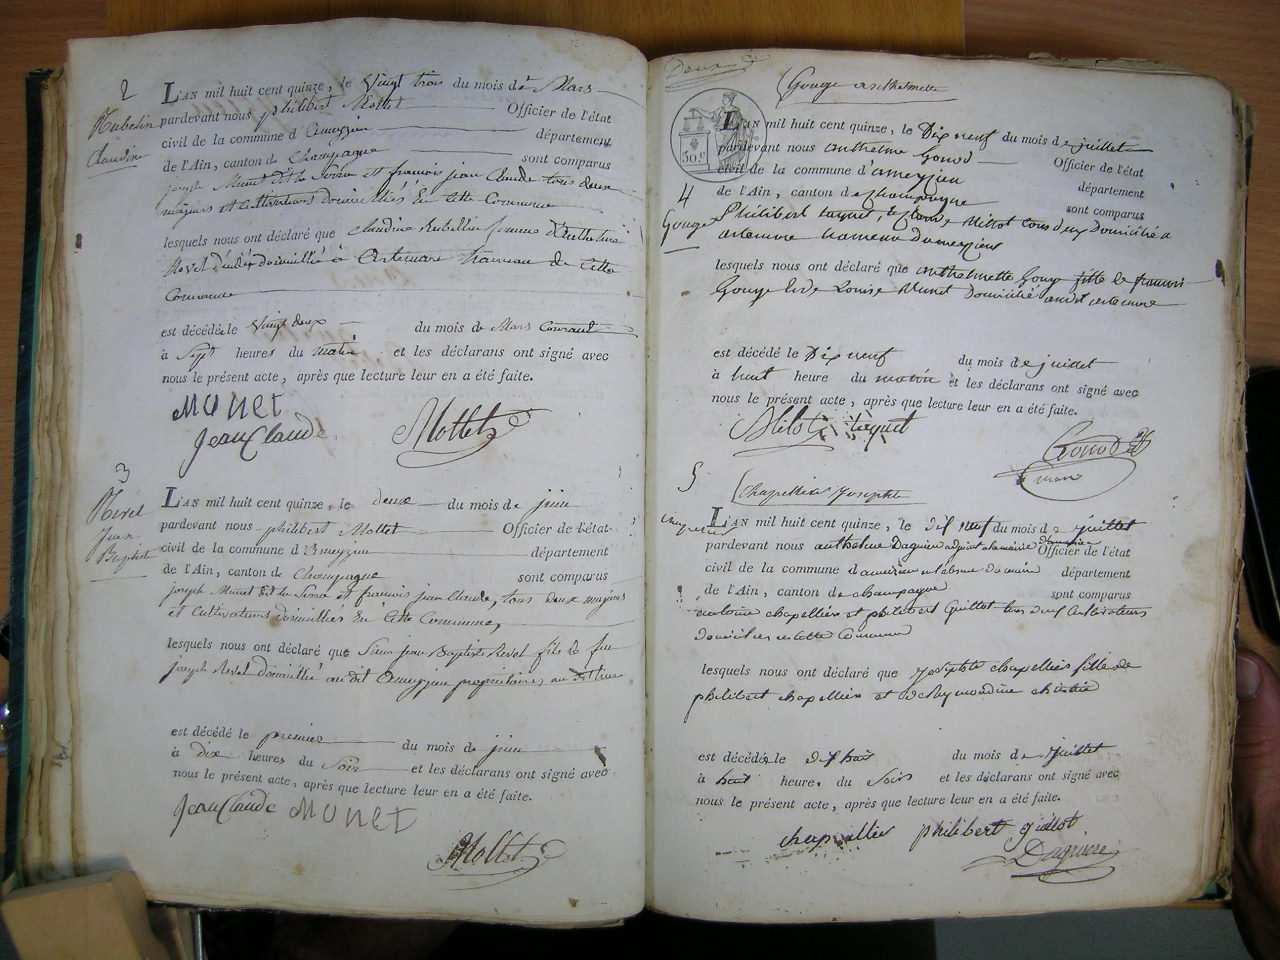 2
Claudine
L'AN mil huit cent quinze, le vingt trois du mois de Mars
pardevant nous philibert Mollet Officier de l'état
civil de la commune d'Ameyzieu département
de l'Ain, canton de Champagne sont comparus
joseph Munet dit la et françois jean Claude tous deux
majeurs et Cultivateurs domiciliés en cette Commune
lesquels nous ont déclaré que Claudine femme d'Anthelme
Revel domicilié à Artemare hameau de cette
Commune
est décédé le vingt deux du mois de Mars Courant
à Sept heures du matin et les déclarans ont signé avec
nous le présent acte, après que lecture leur en a été faite.
MUNET
Jean Claude Mollet
3
Revel
Jean
Baptiste
L'AN mil huit cent quinze, le deux du mois de juin
pardevant nous philibert Mollet Officier de l'état
civil de la commune d'Ameyzieu département
de l'Ain, canton de Champagne sont comparus
joseph Munet dit la et françois jean Claude, tous deux majeurs
et Cultivateurs domiciliés en cette Commune,
lesquels nous ont déclaré que Sieur jean Baptiste Revel fils de feu
joseph Revel domicilié audit Ameyzieu propriétaire au dit lieu
est décédé le premier du mois de juin
à dix heures du Soir et les déclarans ont signé avec
nous le présent acte, après que lecture leur en a été faite.
Jean Claude MUNET
Mollet
Gouge anthelmette
4
Gouge
50 c
L'AN mil huit cent quinze, le Dix neuf du mois de juillet
pardevant nous anthelme Gonod Officier de l'état
civil de la commune d'ameyzieu département
de l'Ain, canton de Champagne sont comparus
Philibert tuquet, Claude Millot tous deux Domicilié a
artemare hameau Dameyzieu
lesquels nous ont déclaré que anthelmette Gouge fille de françois
Gouge et de Louise Munet Domicilié audit artemare
est décédé le Dix neuf du mois de juillet
à huit heure du matin et les déclarans ont signé avec
nous le présent acte, après que lecture leur en a été faite.
Gonod
5
Chapellier Josephte
L'AN mil huit cent quinze, le dix neuf du mois de juillet
pardevant nous anthelme Daguin adjoint Officier de l'état
civil de la commune d'ameyzieu département
de l'Ain, canton de champagne sont comparus
antoine chapellier et philibert Guillot tous deux Cultivateurs
Domiciliés en cette Commune
lesquels nous ont déclaré que Josephte chapellier fille de
philibert chapellier et de
est décédé le dix huit du mois de juillet
à huit heure, du Soir et les déclarans ont signé avec
nous le présent acte, après que lecture leur en a été faite.
chapellier philibert guillot